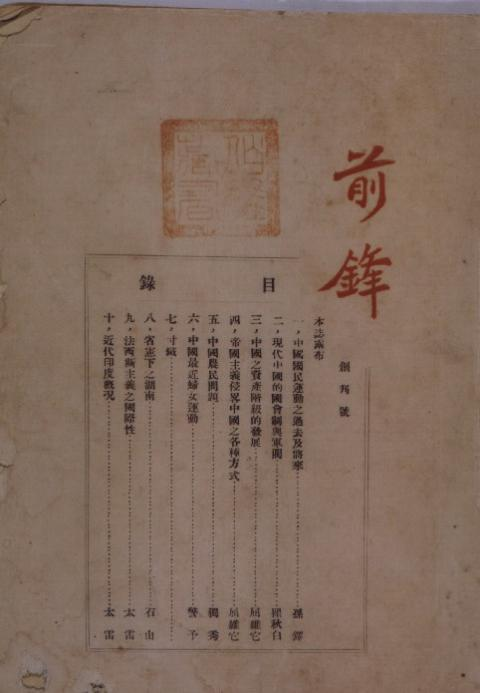 前鋒
創刊號
目錄
本誌露布
一,中國國民運動之過去及將來 孫鐸
二,現代中國的國會制與軍閥 瞿秋白
三,中國之資產階級的發展 屈維它
四,帝國主義侵略中國之各種方式 屈維它
五,中國農民問題 獨秀
六,中國最近婦女運動 警予
七,寸鐵
八,省憲下之湖南 石山
九,法西斯主義之國際性 太雷
十,近代印度概况 太雷